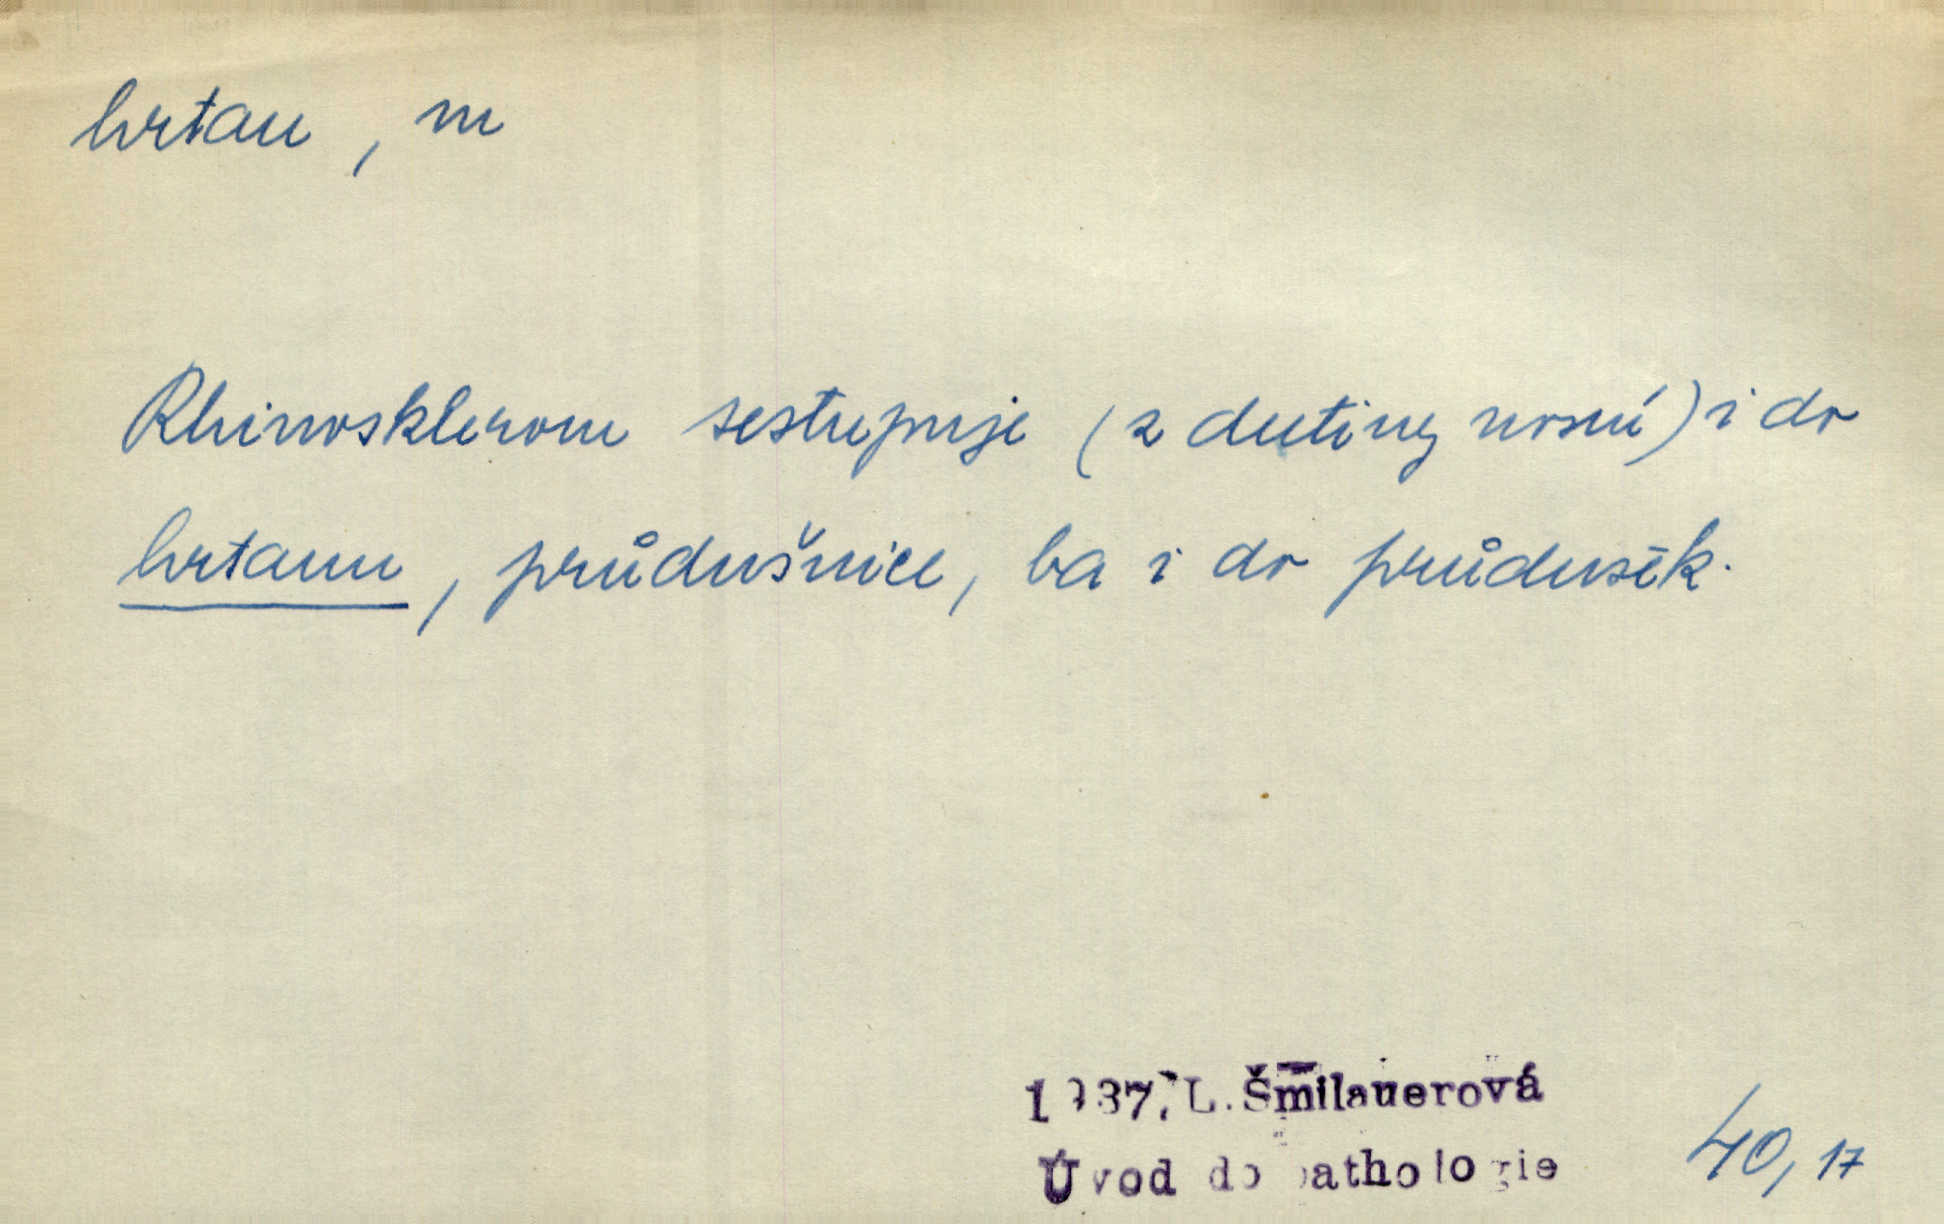 hrtan, m
Rhinosklerom sestupuje (z dutiny nosní) i do
hrtanu, průdušnice, ba i do průdušek.
1937, L. Šmilauerová
Úvod do pathologie
40, 17